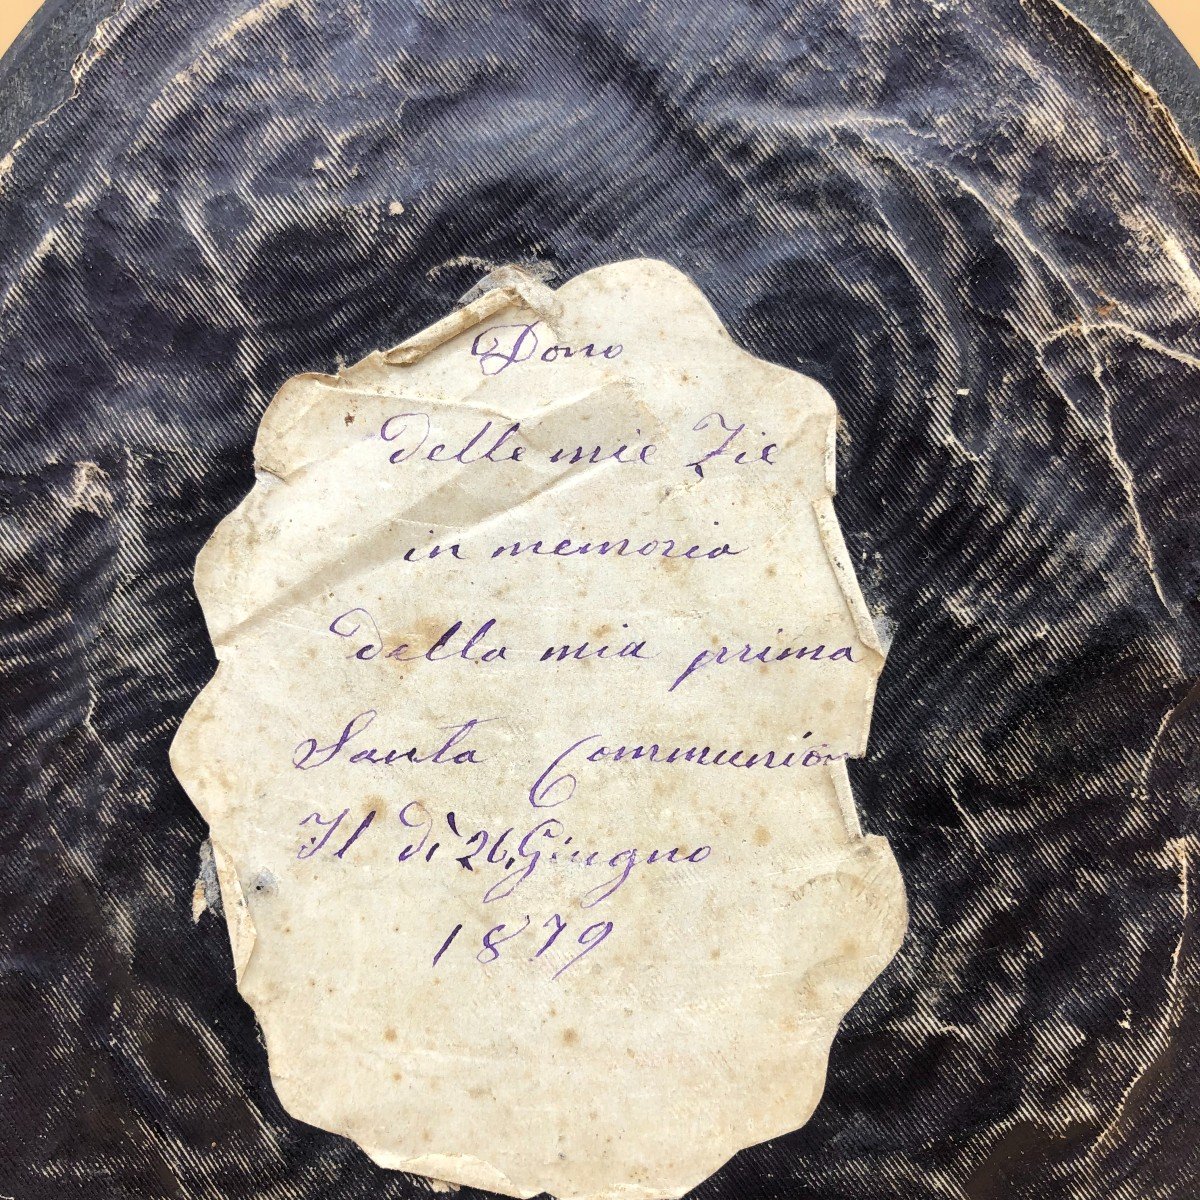 Dono
delle mie Zie
in memoria
della mia prima
Santa Communion
Il dì 26 Giugno
1879